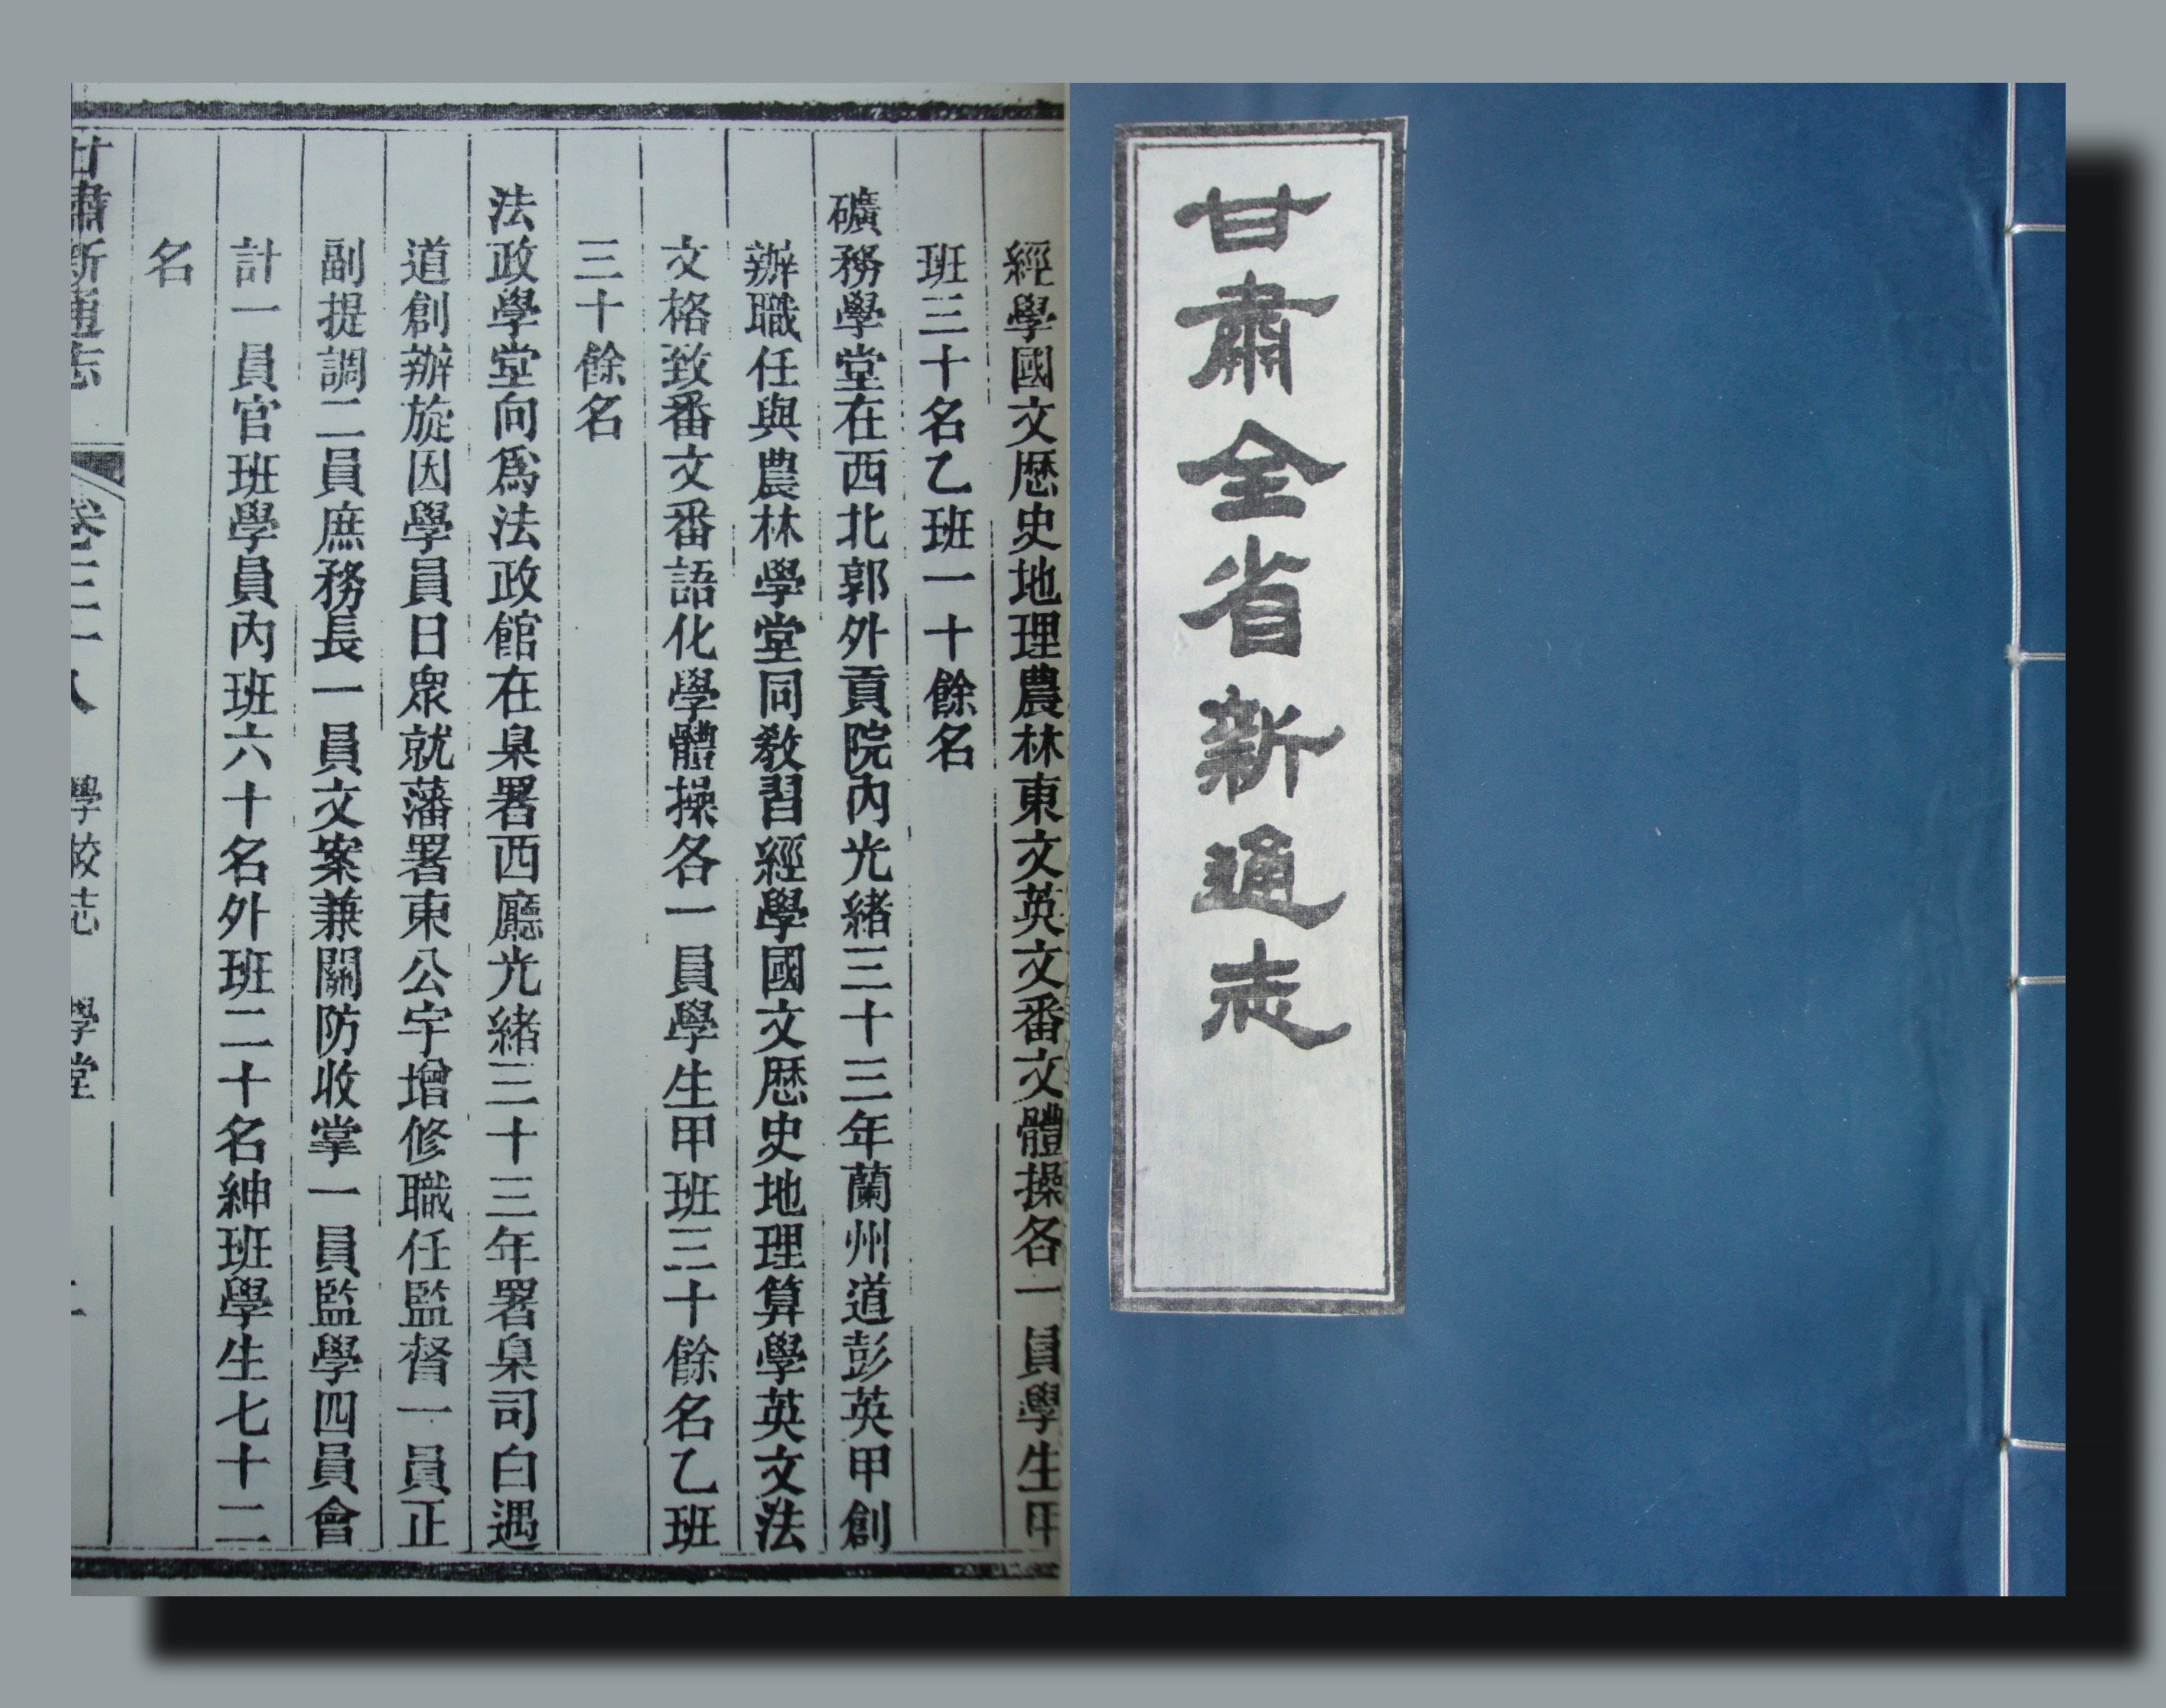 甘肅全省新通志
經學國文歷史地理農林東文英文番文體操各一員學生甲
班三十名乙班一十餘名
礦務學堂在西北郭外貢院內光緒三十三年蘭州道彭英甲創
辦職任與農林學堂同教習經學國文歷史地理算學英文法
文格致番文番語化學體操各一員學生甲班三十餘名乙班
三十餘名
法政學堂向爲法政館在臬署西廳光緒三十三年署臬司白遇
道創辦旋因學員日衆就藩署東公宇增修職任監督一員正
副提調二員庶務長一員文案兼關防收掌一員監學四員會
計一員官班學員內班六十名外班二十名紳班學生七十二
名
甘肅新通志 卷三十八 學校志 學堂